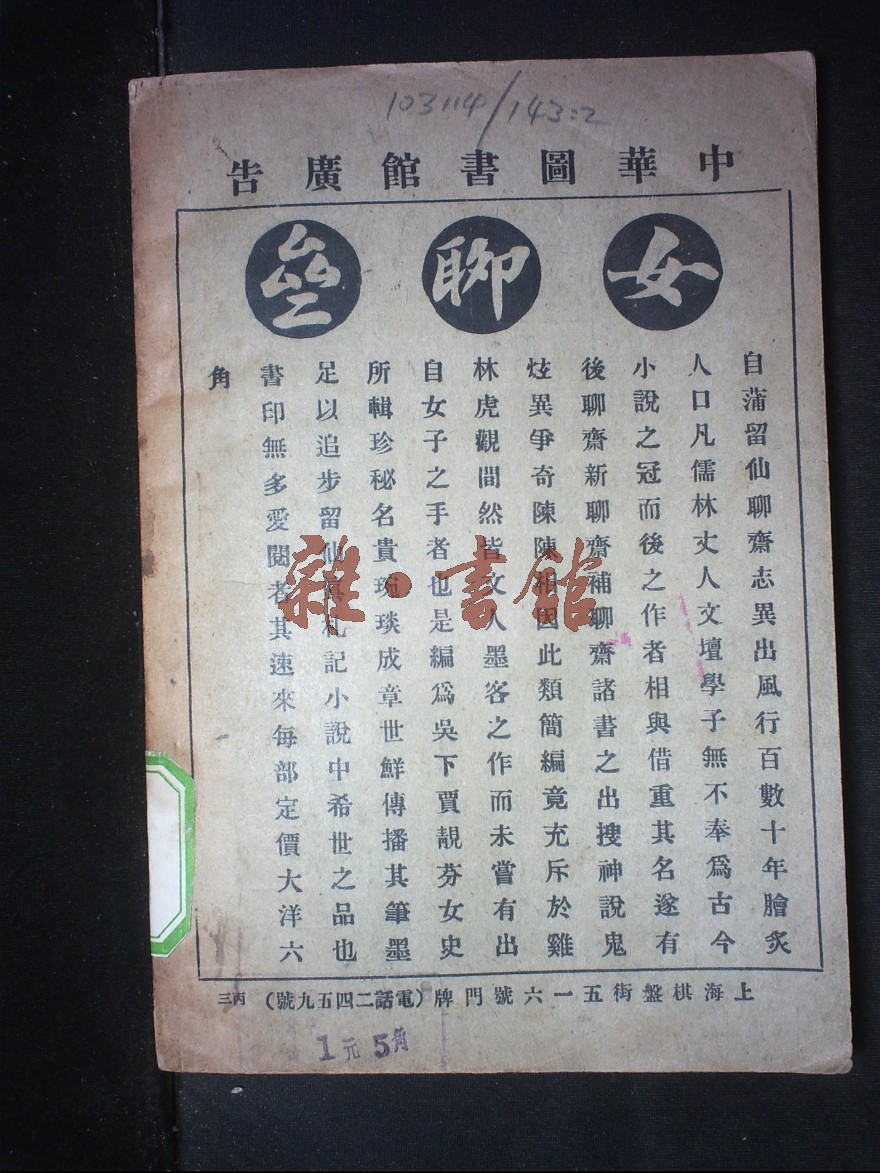 103114/143:2
中華圖書館廣告
女聊齋
自蒲留仙聊齋志異出風行百數十年膾炙
人口凡儒林丈人文壇學子無不奉爲古今
小說之冠而後之作者相與借重其名遂有
後聊齋新聊齋補聊齋諸書之出搜神說鬼
炫異爭奇陳陳相因此類簡編竟充斥於雞
林虎觀間然皆文人墨客之作而未嘗有出
自女子之手者也是編爲吳下賈靚芬女史
所輯珍秘名貴琬琰成章世鮮傳播其筆墨
足以追步留仙眞札記小說中希世之品也
書印無多愛閱者其速來每部定價大洋六
角
上海棋盤街五一六號門牌(電話二四五九號) 丙三
1元5角
雜·書館